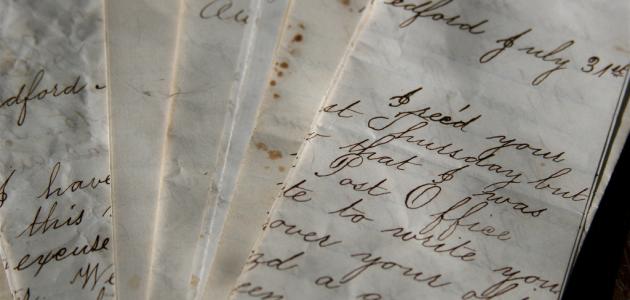 dford -
I have
this
excuse
We
Au
edford July 31st
I rec'd your
st Thursday but
that I was
Post Office
te to write you
over your
a